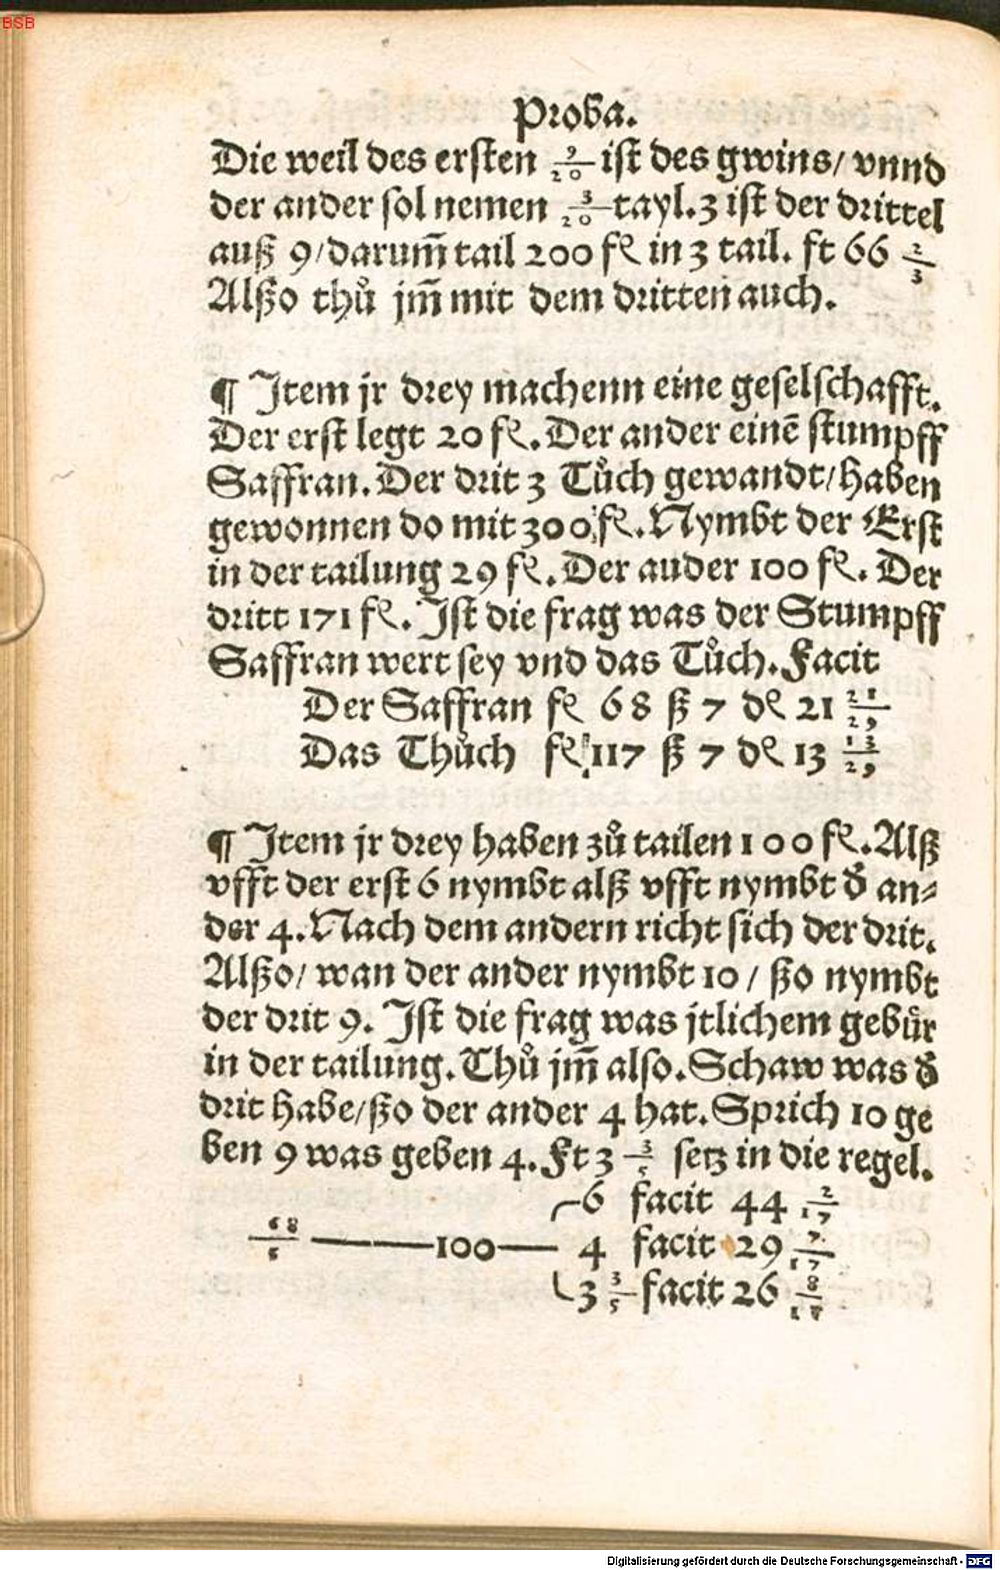 BSB
Proba.
Die weil des ersten 9/20 ist des gwins/ vnnd
der ander sol nemen 3/20 tayl. 3 ist der drittel
auß 9/ darum̃ tail 200 fl in 3 tail. ft 66 2/3
Alßo thů jm̃ mit dem dritten auch.
¶ Item jr drey machenn eine geselschafft.
Der erst legt 20 fl. Der ander einẽ stumpff
Saffran. Der drit 3 Tůch gewandt/ haben
gewonnen do mit 300 fl. Nymbt der Erst
in der tailung 29 fl. Der auder 100 fl. Der
dritt 171 fl. Ist die frag was der Stumpff
Saffran wert sey vnd das Tůch. Facit
Der Saffran fl 68 ß 7 dl 21 21/29
Das Thůch fl 117 ß 7 dl 13 13/29
¶ Item jr drey haben zů tailen 100 fl. Alß
vfft der erst 6 nymbt alß vfft nymbt d̃ an⸗
der 4. Nach dem andern richt sich der drit.
Alßo/ wan der ander nymbt 10 / ßo nymbt
der drit 9. Ist die frag was jtlichem gebůr
in der tailung. Thů jm̃ also. Schaw was d̃
drit habe/ ßo der ander 4 hat. Sprich 10 ge
ben 9 was geben 4. Ft 3 3/5 setz in die regel.
6 facit 44 2/17
68/5 —— 100 — 4 facit 29 7/17
3 3/5 facit 26 8/17
Digitalisierung gefördert durch die Deutsche Forschungsgemeinschaft - DFG